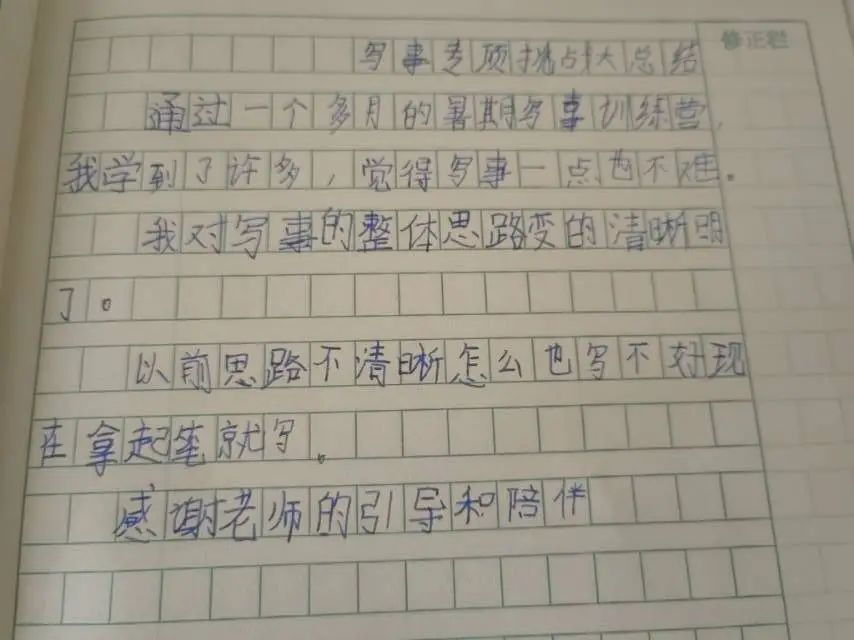 修正栏
写事专项挑战大总结
通过一个多月的暑期写事训练营，
我学到了许多，觉得写事一点也不难。
我对写事的整体思路变的清晰明
了。
以前思路不清晰怎么也写不好现
在拿起笔就写。
感谢老师的引导和陪伴